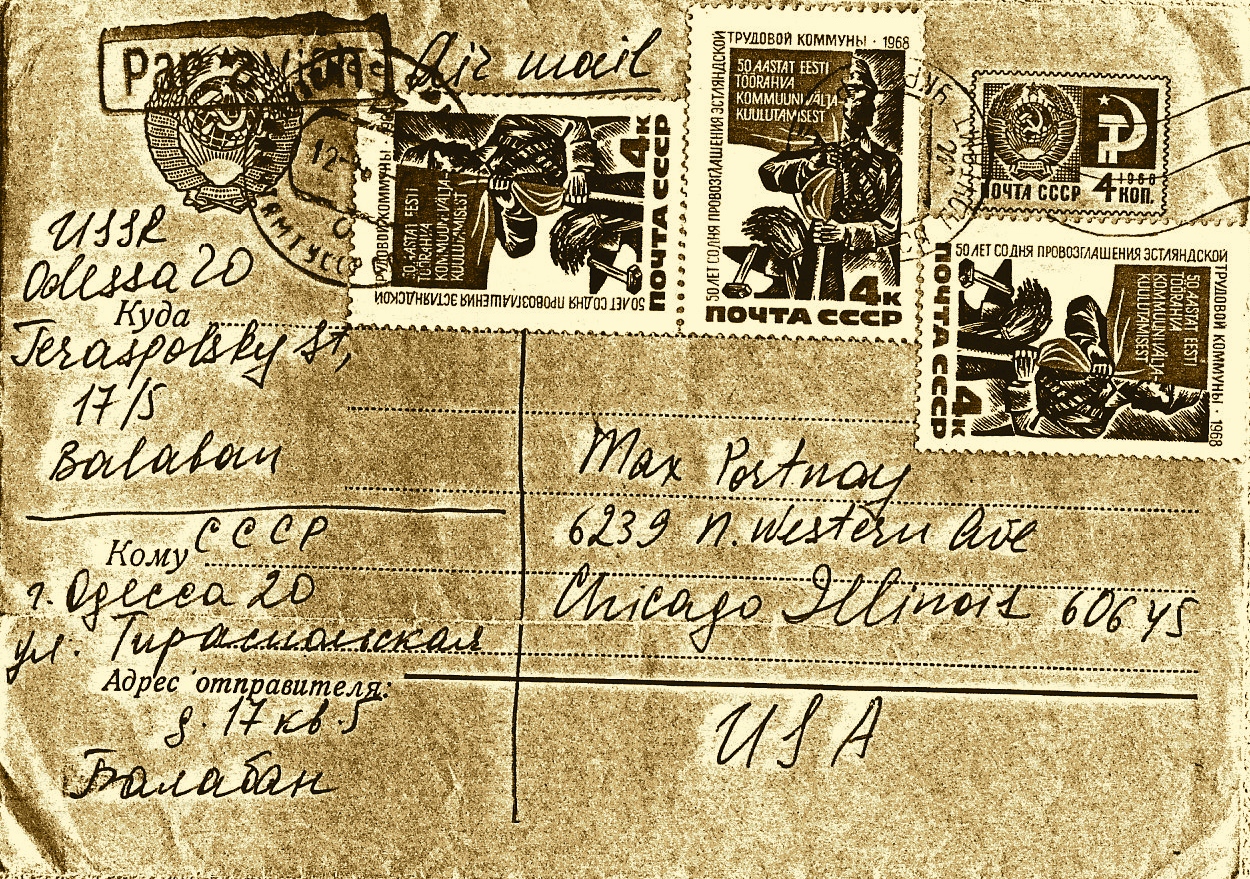 Par avion
Air mail
ТРУДОВОЙ КОММУНЫ · 1968
50 ЛЕТ СО ДНЯ ПРОВОЗГЛАШЕНИЯ ЭСТЛЯНДСКОЙ
50 AASTAT EESTI
TÖÖRAHVA
KOMMUUNI VÄLJA-
KUULUTAMISEST
4к
ПОЧТА СССР
50 ЛЕТ СО ДНЯ ПРОВОЗГЛАШЕНИЯ ЭСТЛЯНДСКОЙ
ТРУДОВОЙ КОММУНЫ ·
50 AASTAT EESTI
TÖÖRAHVA
KOMMUUNI VÄLJA-
KUULUTAMISEST
4к
ПОЧТА СССР
1968
ПОЧТА СССР
4 КОП.
50 ЛЕТ СО ДНЯ ПРОВОЗГЛАШЕНИЯ ЭСТЛЯНДСКОЙ
ТРУДОВОЙ КОММУНЫ · 1968
50 AASTAT EESTI
TÖÖRAHVA
KOMMUUNI VÄLJA-
KUULUTAMISEST
4к
ПОЧТА СССР
USSR
Odessa 20
Куда
Teraspolsky St,
17/5
Balaban
Кому СССР
г. Одесса 20
ул. Тираспольская
Адрес отправителя:
д. 17 кв. 5
Балабан
Max Portnoy
6239 N. Western Ave
Chicago Illinois 60645
USA